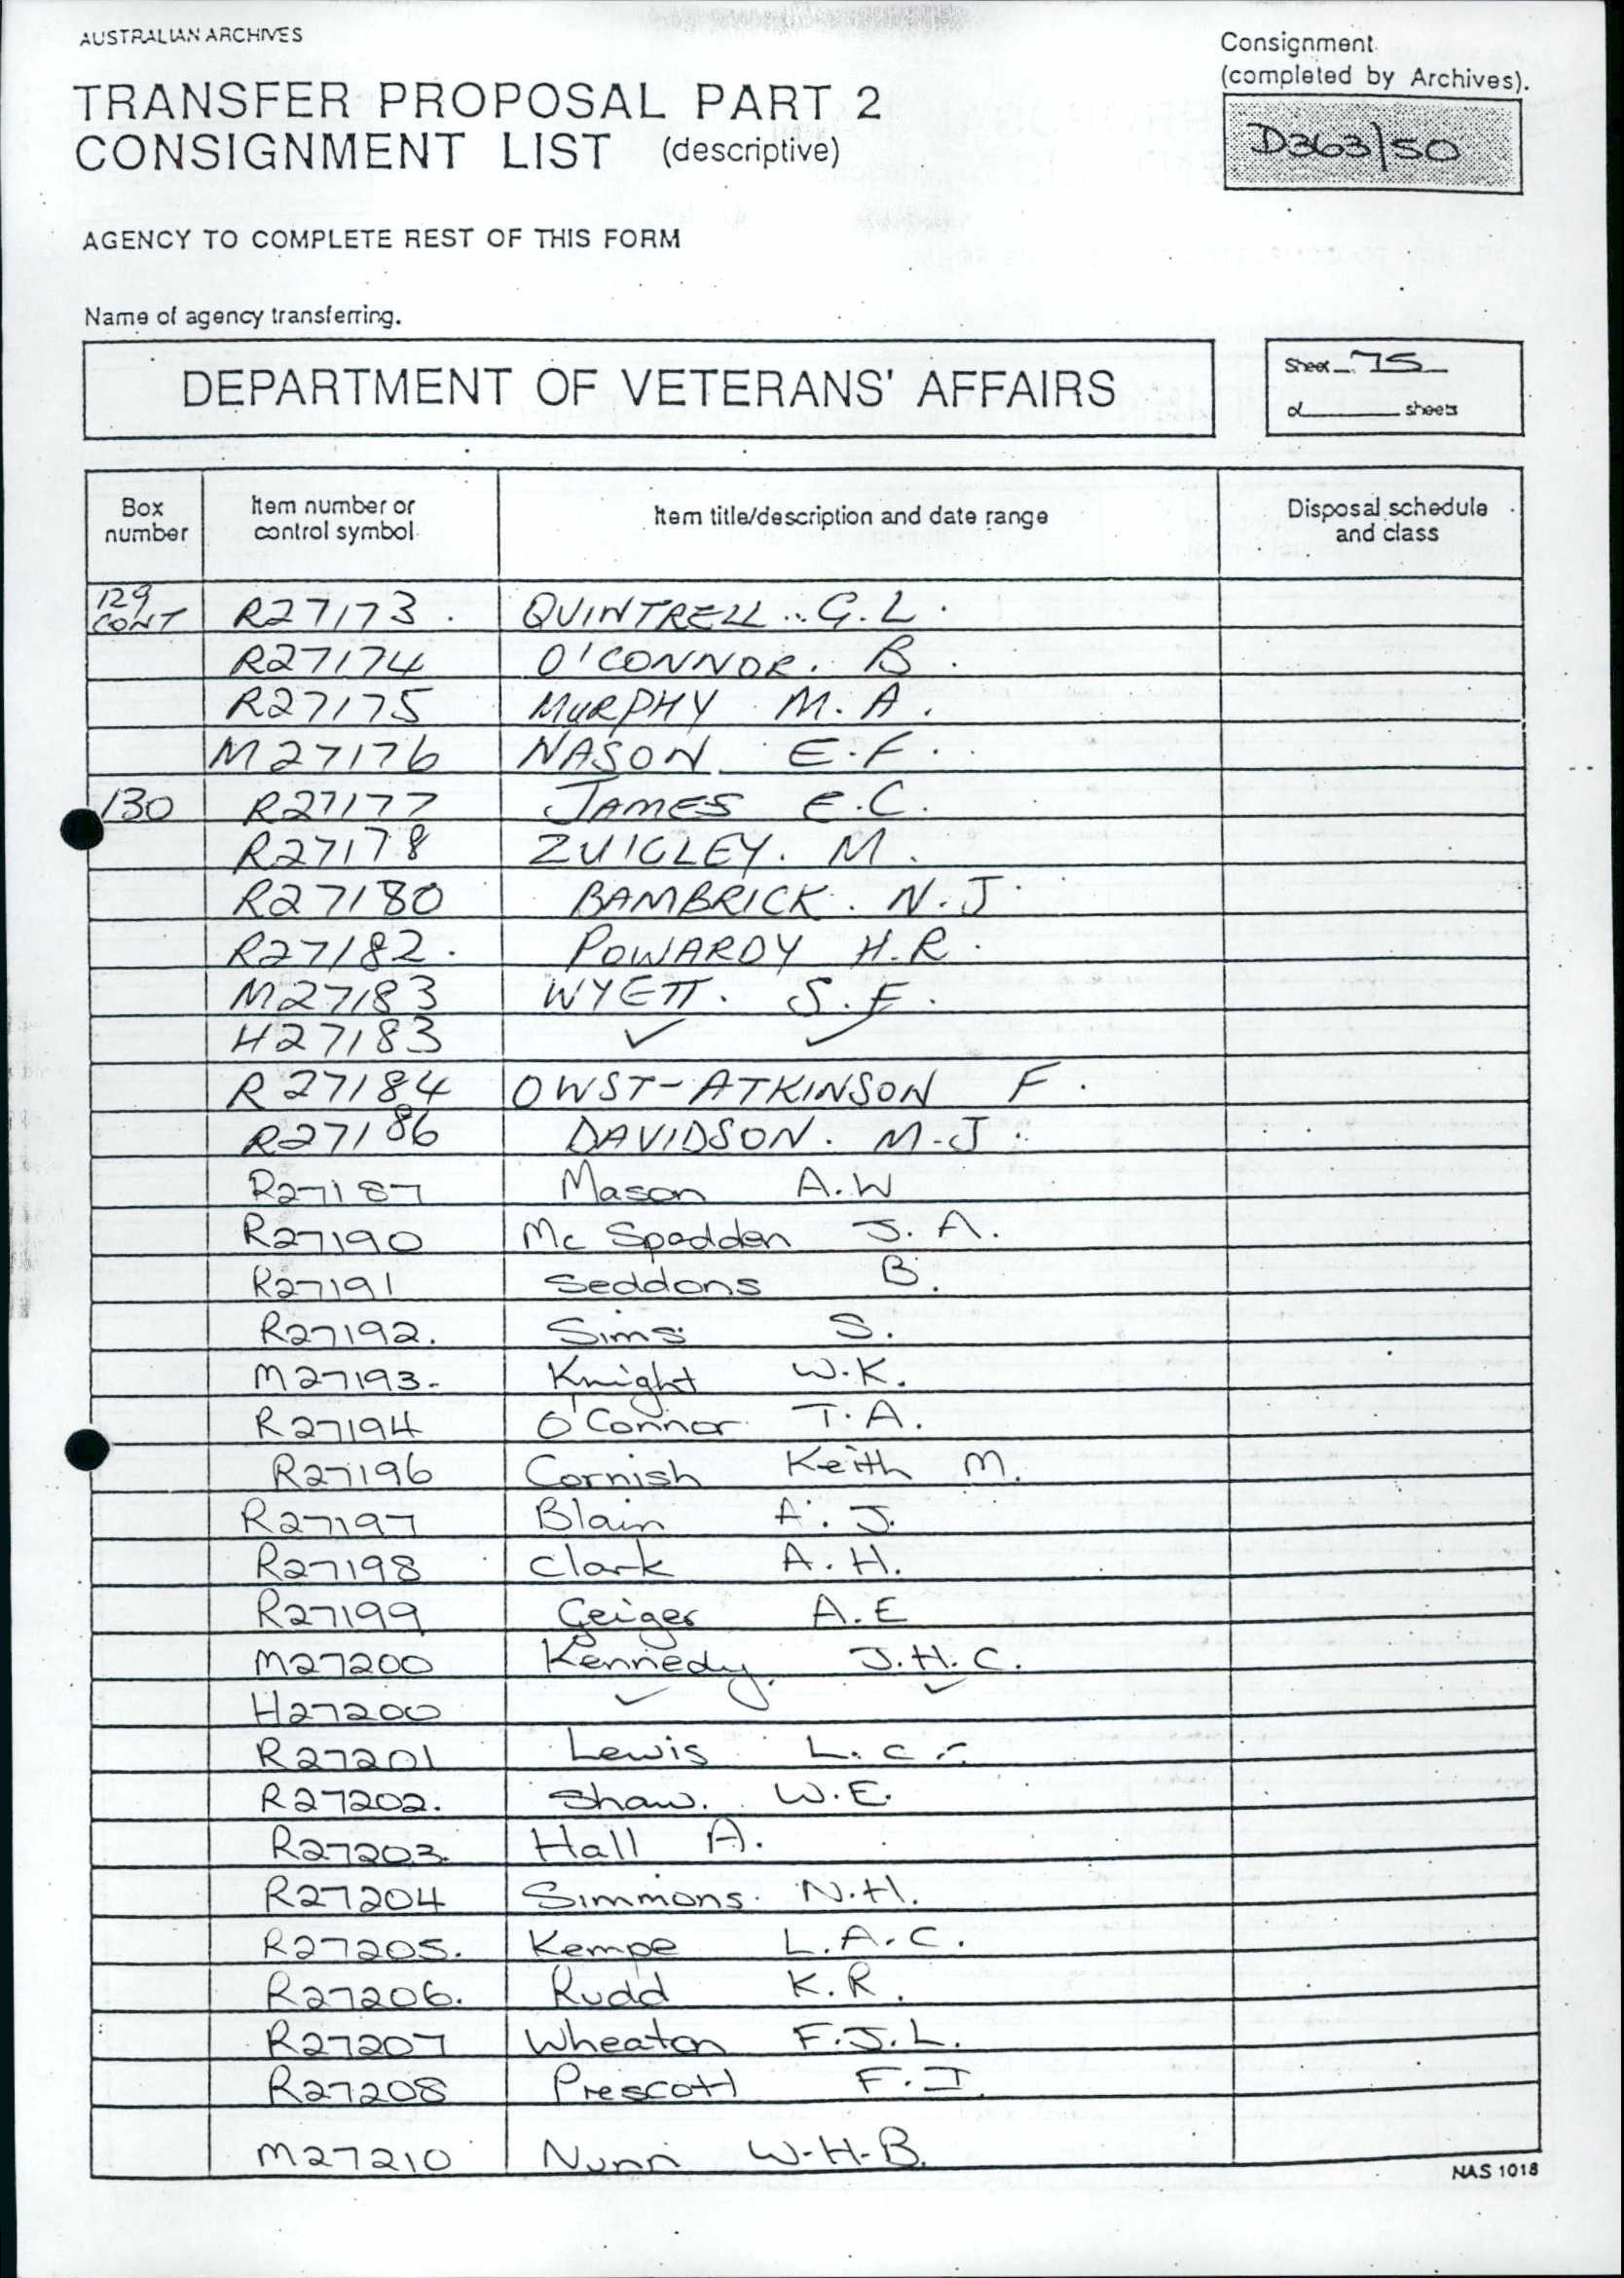 AUSTRALIAN ARCHIVES
Consignment
(completed by Archives).
TRANSFER PROPOSAL PART 2
CONSIGNMENT LIST (descriptive)
D363/50
AGENCY TO COMPLETE REST OF THIS FORM
Name of agency transferring.
DEPARTMENT OF VETERANS' AFFAIRS
Sheet 75
of sheets
Box number
Item number or control symbol
Item title/description and date range
Disposal schedule and class
129 CONT R27173 . QUINTRELL .. G.L.
R27174 O'CONNOR. B.
R27175 MURPHY M.A.
M27176 NASON E.F.
130 R27177 JAMES E.C.
R27178 ZUIGLEY. M.
R27180 BAMBRICK. N.J
R27182. POWARDY H.R.
M27183 WYETT. S.F.
H27183 ✓ ✓
R27184 OWST-ATKINSON F.
R27186 DAVIDSON. M.J.
R27187 Mason A.W
R27190 Mc Spadden J.A.
R27191 Seddons B.
R27192. Sims S.
M27193. Knight W.K.
R27194 O'Connor T.A.
R27196 Cornish Keith M.
R27197 Blain A.J.
R27198 Clark A.H.
R27199 Geiger A.E
M27200 Kennedy J.H.C.
H27200 ✓ ✓
R27201 Lewis L.C.
R27202. Shaw. W.E.
R27203. Hall A.
R27204 Simmons. N.H.
R27205. Kempe L.A.C.
R27206. Rudd K.R.
R27207 Wheaton F.J.L.
R27208 Prescott F.I.
M27210 Nunn W.H.B.
NAS 1018